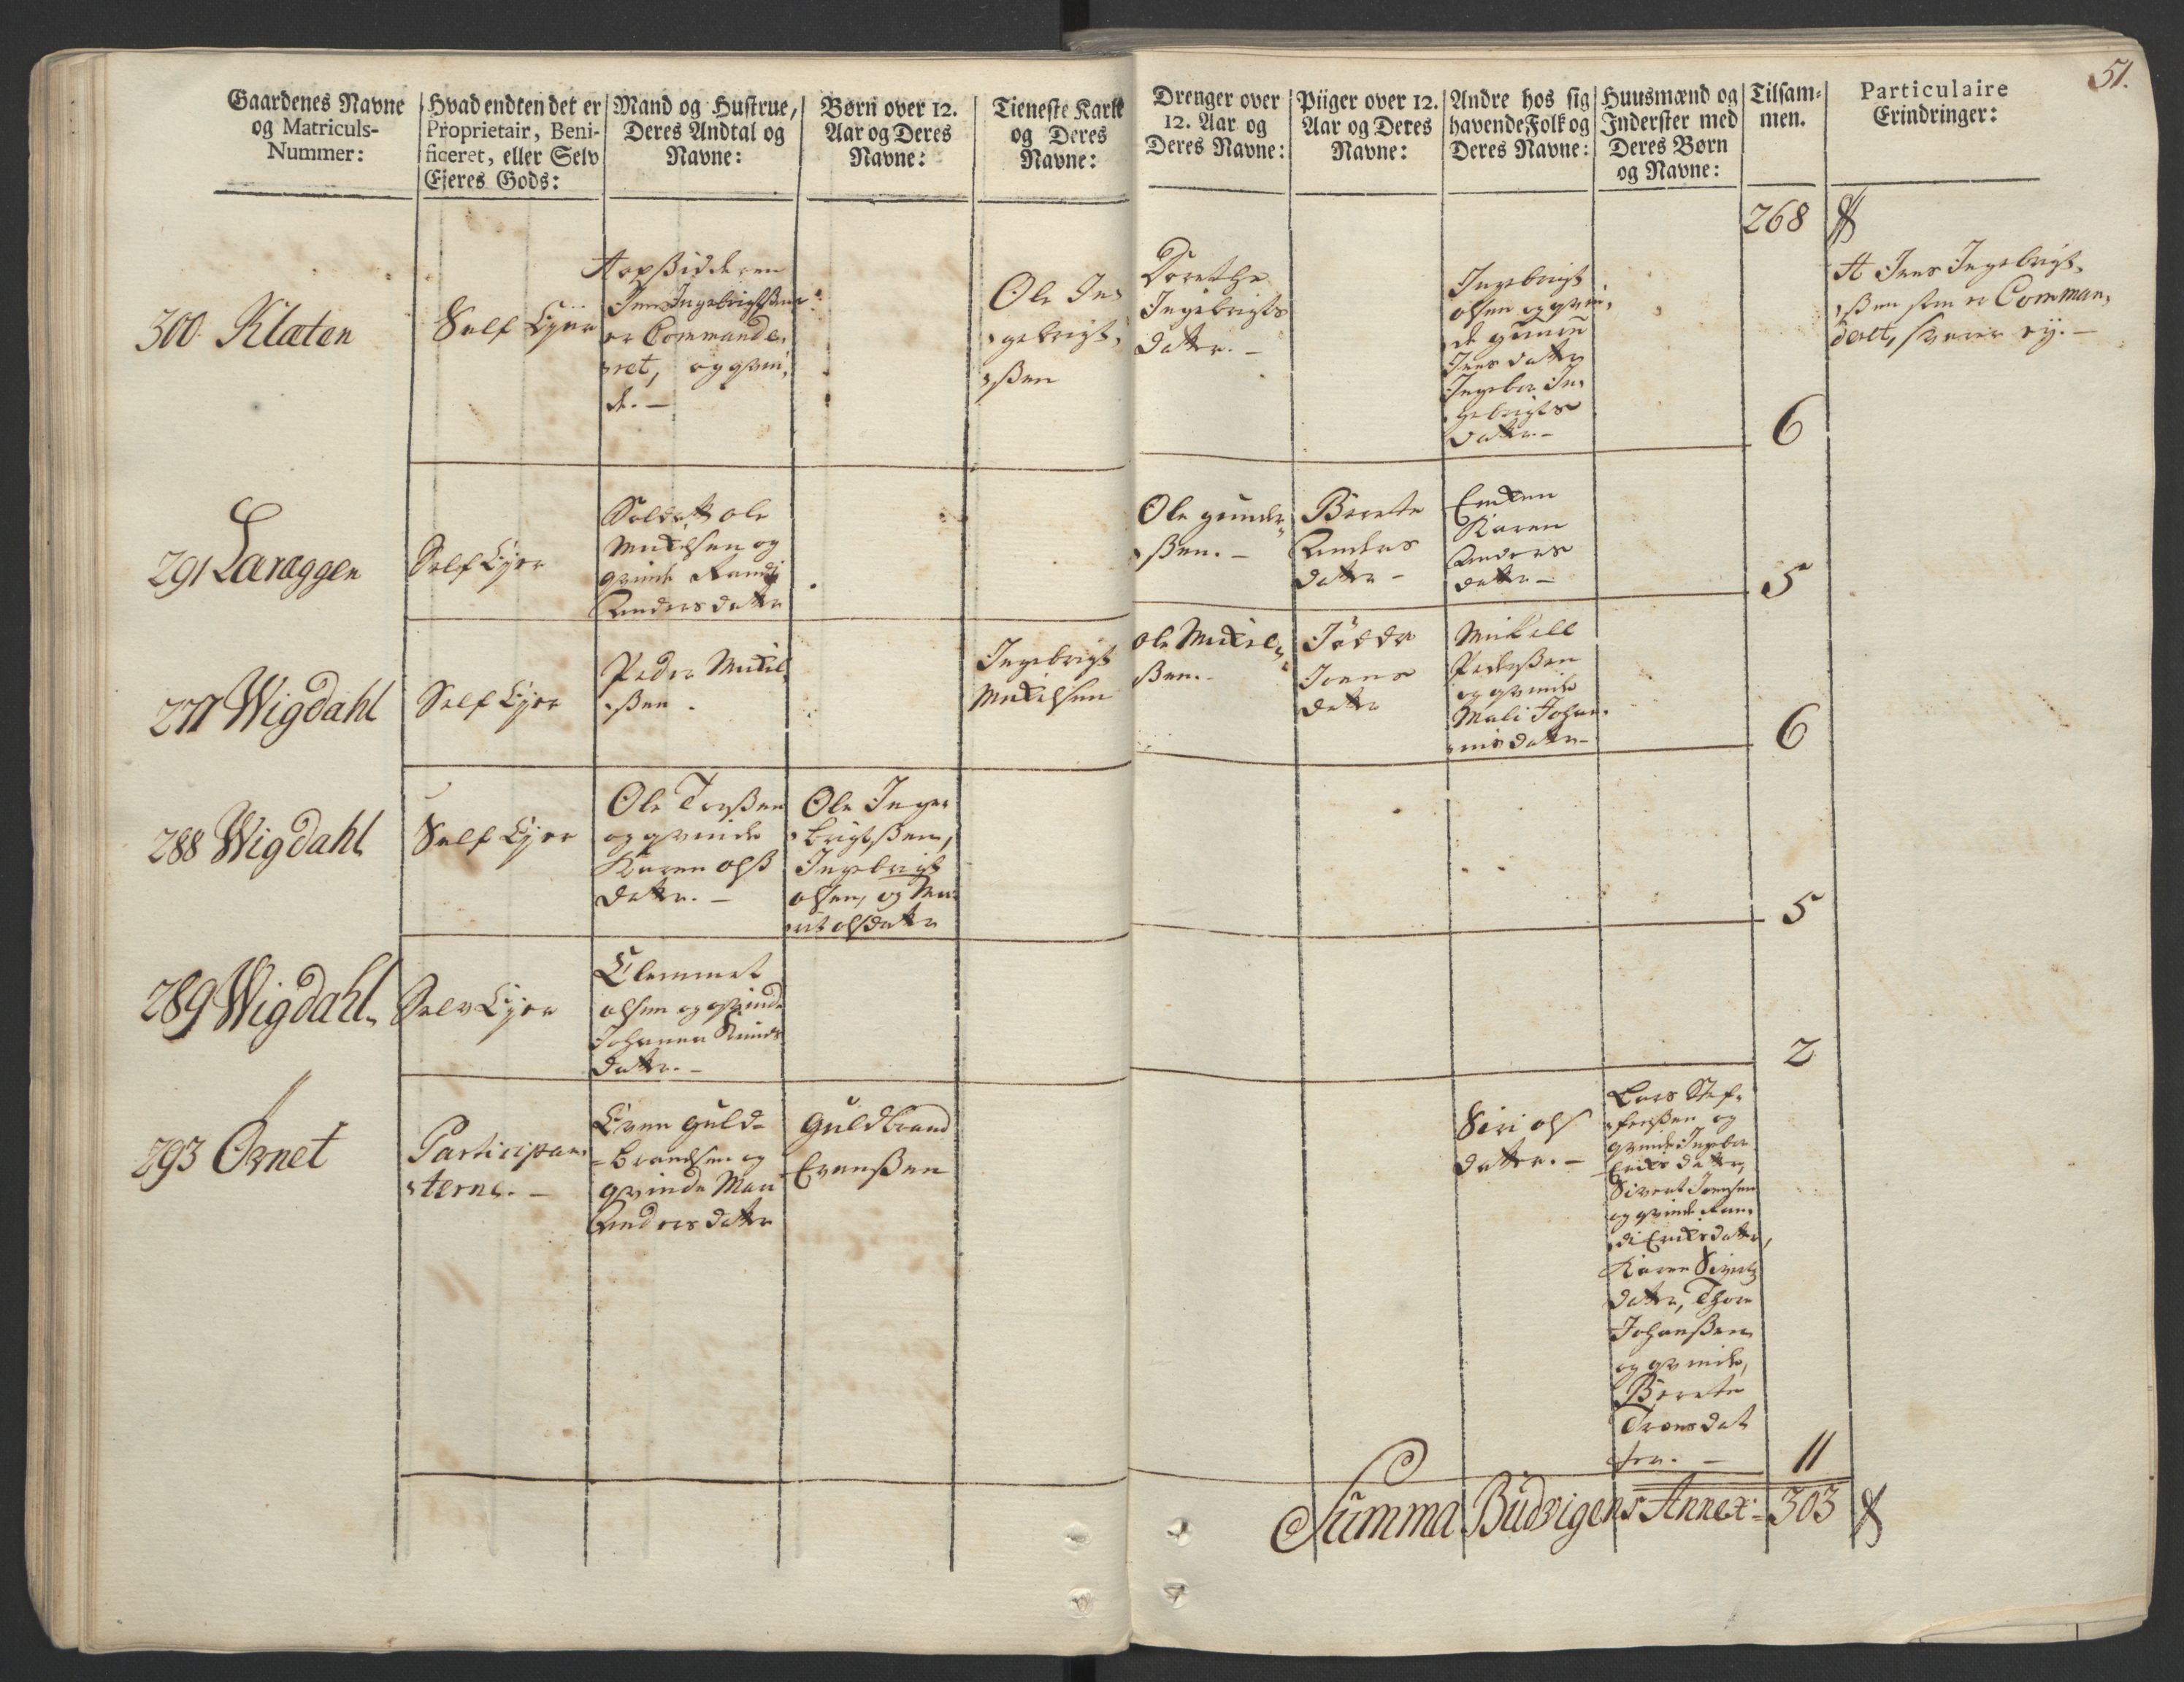 51.
Gaardenes Navne
og Matriculs-
Nummer:
Hvad endten det er
Proprietair, Beni-
ficeret, eller Selv
Ejeres Gods:
Mand og Hustrue,
Deres Andtal og
Navne:
Børn over 12.
Aar og Deres
Navne:
Tieneste Karle
og Deres
Navne:
Drenger over
12. Aar og
Deres Navne:
Piiger over 12.
Aar og Deres
Navne:
Andre hos sig
havende Folk og
Deres Navne:
Huusmænd og
Inderster med
Deres Børn
og Navne:
Tilsam-
men.
Particulaire
Erindringer:
268
300 Klæten
Self Ejer
Opsidderen
Jens Ingebrigtsen
er Commande,
ret, og qvin,
de. —
Ole In,
gebrigt,
ßen
Dorethe
Ingebrigts
datter. —
Ingebrigt
olsen og qvin,
de
Jens datter
Ingebor In,
gebrigts
datter. —
6
At Jens Ingebrigt,
ßen som er Comman,
deret, svarer ej. —
291 Læraggen
Self Ejer
Soldatt ole
Mickelsen og
qvinde Randj
Anders datter
Ole gunder,
ßen. —
Berette
Anders
datter —
Encken
Karen
Anders
datter —
5
277 Wigdahl
Self Ejer
Peder Mickel,
ßen.
Ingebrigt
Mickelsen
ole Mickel,
ßen.
Joens
datter
Mickell
Pederßen
og qvinde
Mali Johan,
nis datter —
6
288 Wigdahl
Self Ejer
Ole Torßen
og qvinde
Karen olß
datter. —
Ole Inge,
brigtßen,
Ingebrigt
olsen, og Ma,
rit olsdatter
5
289 Wigdahl.
Selv Ejer
Clemmet
olsen og qvinde
Johanna Knuds
datter. —
2
293 Ornet
Participan,
terne. —
Even Guld-
brandsen og
qvinde Mari
Anders datter
Guldbrand
Evenßen
Siri ols
datter. —
Lars Stef,
fenßen og
qvinde Ingebor
Ericks datter,
Sivert Joensen
og qvinde Ran,
di Ericksdatter,
Karen Siverts
datter, Thore
Johanßen
og qvinde,
Berete
Trons dat
ter. —
11
Summa Budvigens Annex - 303